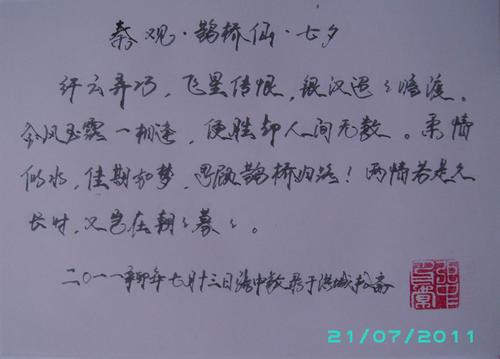 秦观·鹊桥仙·七夕
纤云弄巧，飞星传恨，银汉迢〻暗渡。
金风玉露一相逢，便胜却人间无数。柔情
似水，佳期如梦，忍顾鹊桥归路！两情若是久
长时，又岂在朝〻暮〻。
二〇一一辛卯年七月十三日 于洪城 斋
21/07/2011